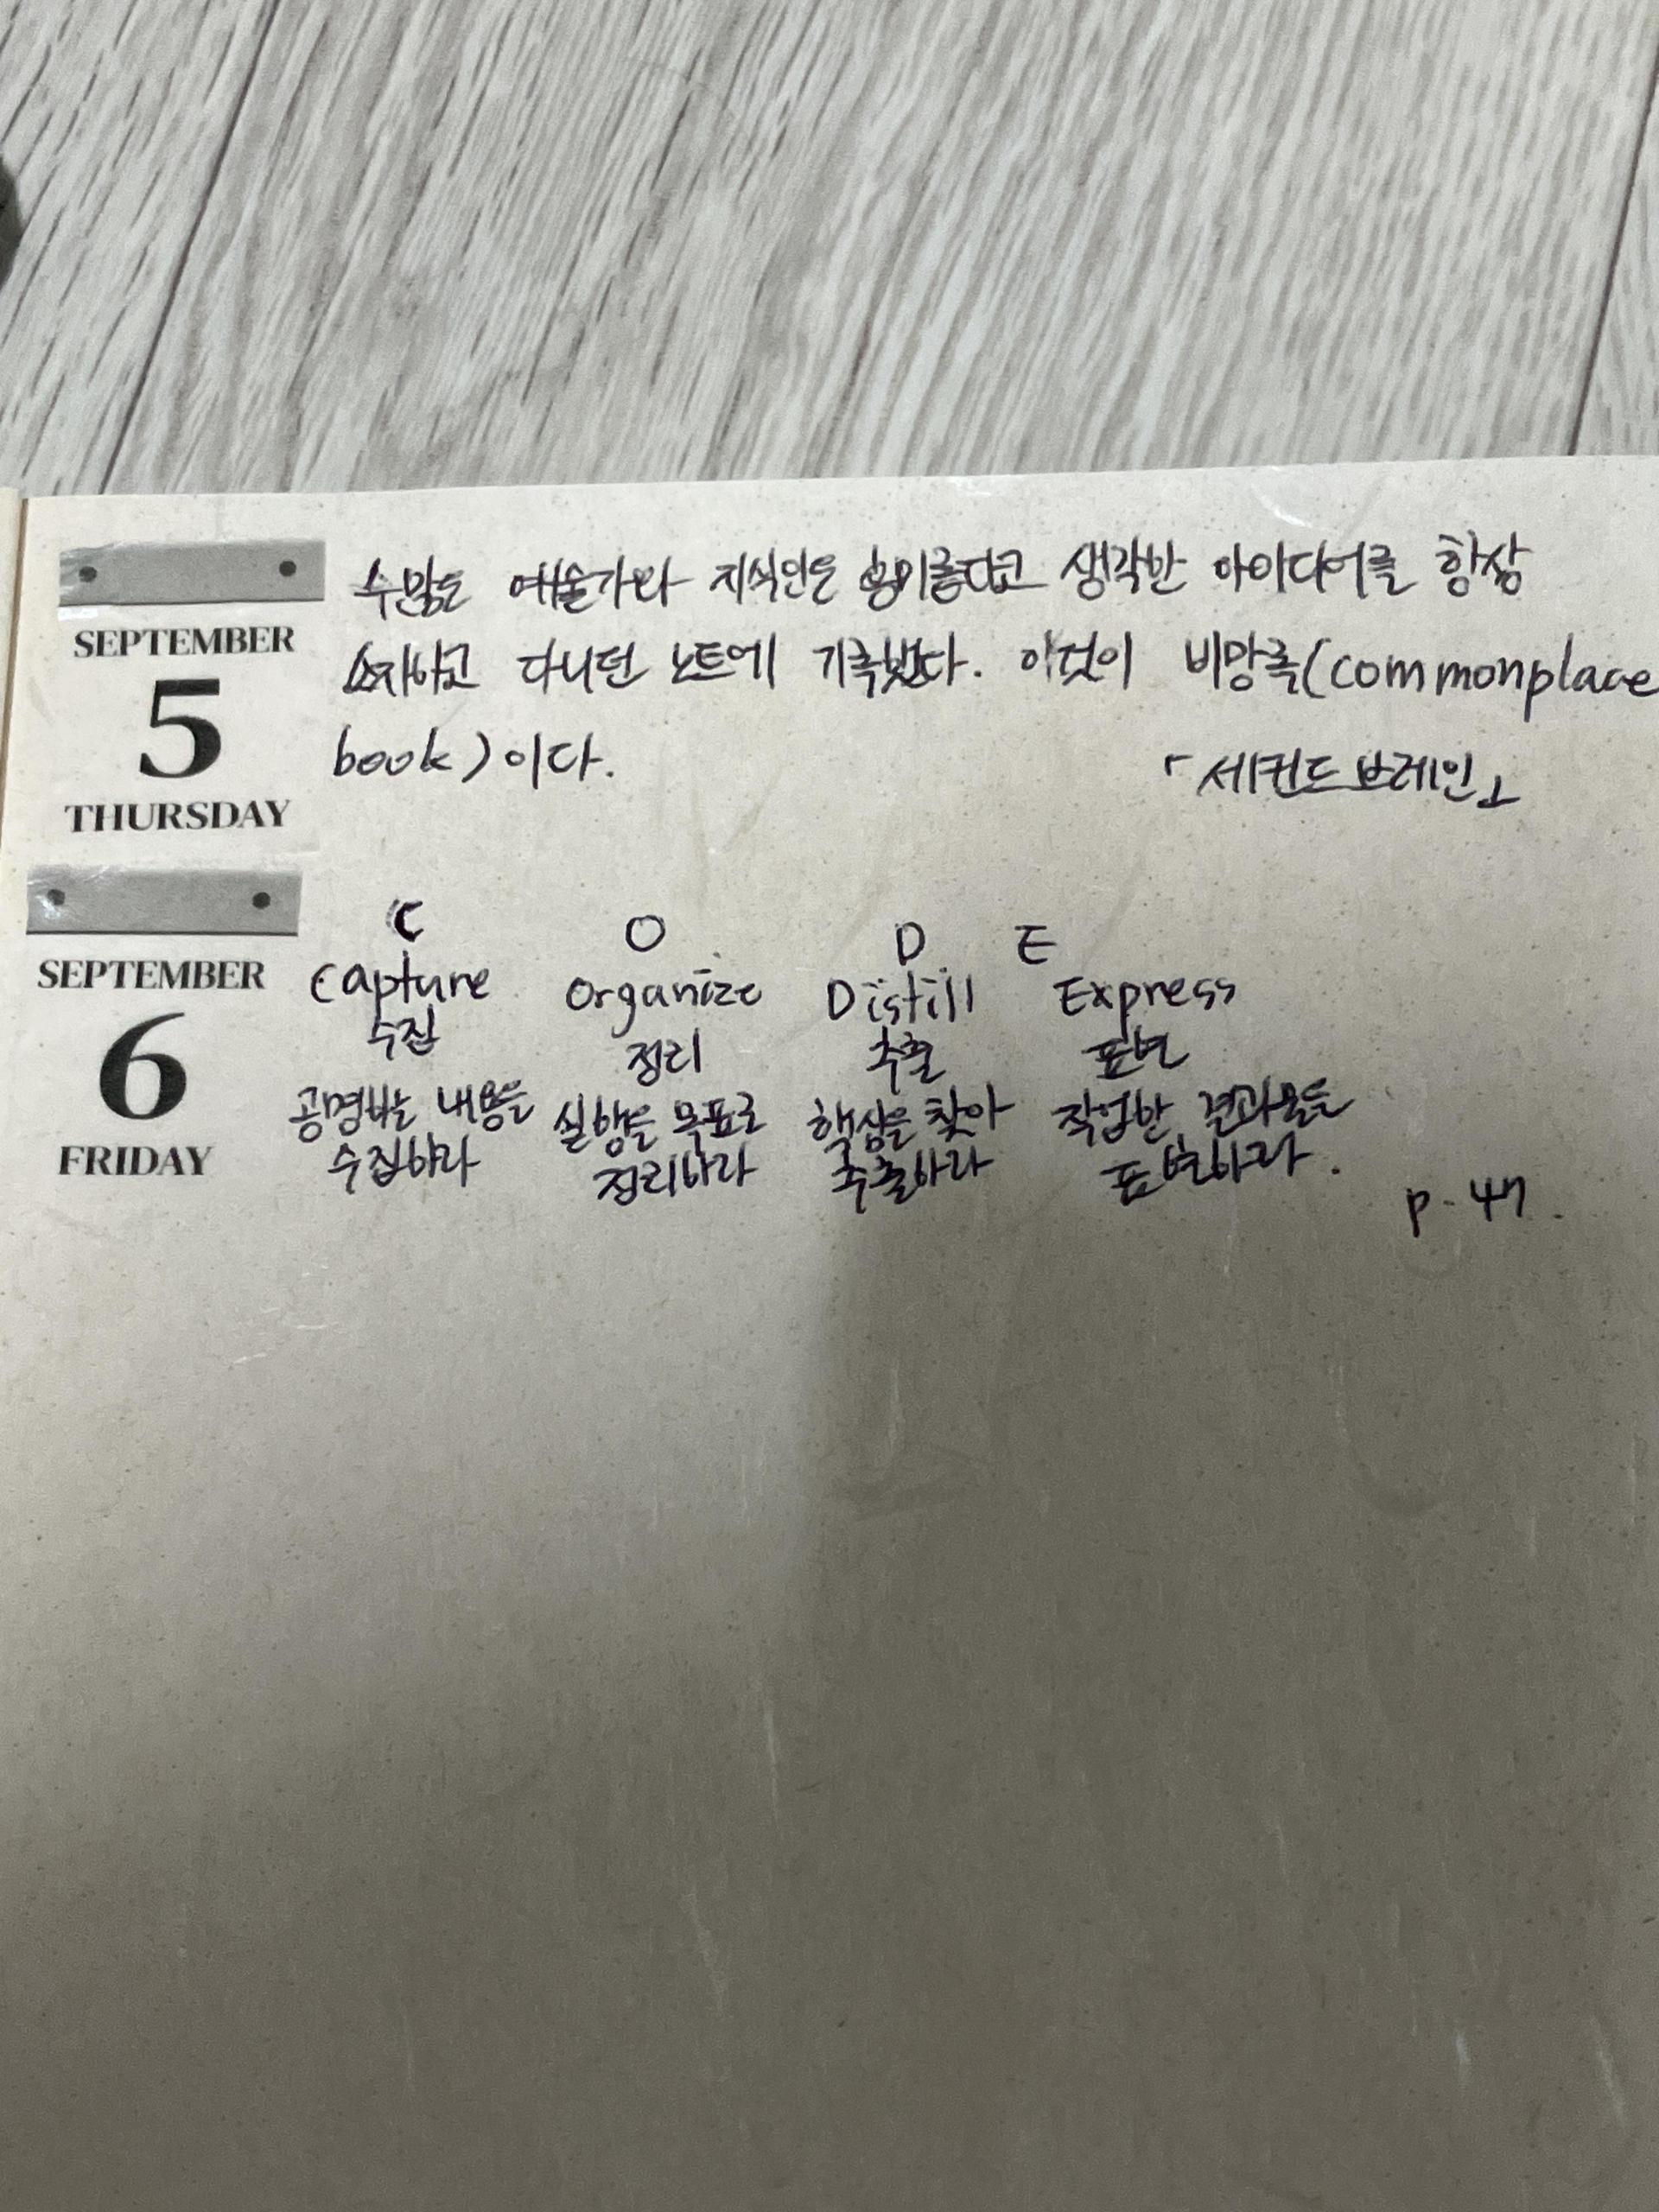 SEPTEMBER
5
THURSDAY
수많은 예술가와 지식인은 흥미롭다고 생각한 아이디어를 항상
소지하고 다니던 노트에 기록했다. 이것이 비망록(commonplace
book)이다.
「세컨드 브레인」
SEPTEMBER
6
FRIDAY
C O D E
Capture Organize Distill Express
수집 정리 추출 표현
공명하는 내용을 실행을 목표로 핵심을 찾아 작업한 결과물을
수집하라 정리하라 추출하라 표현하라.
p. 47.